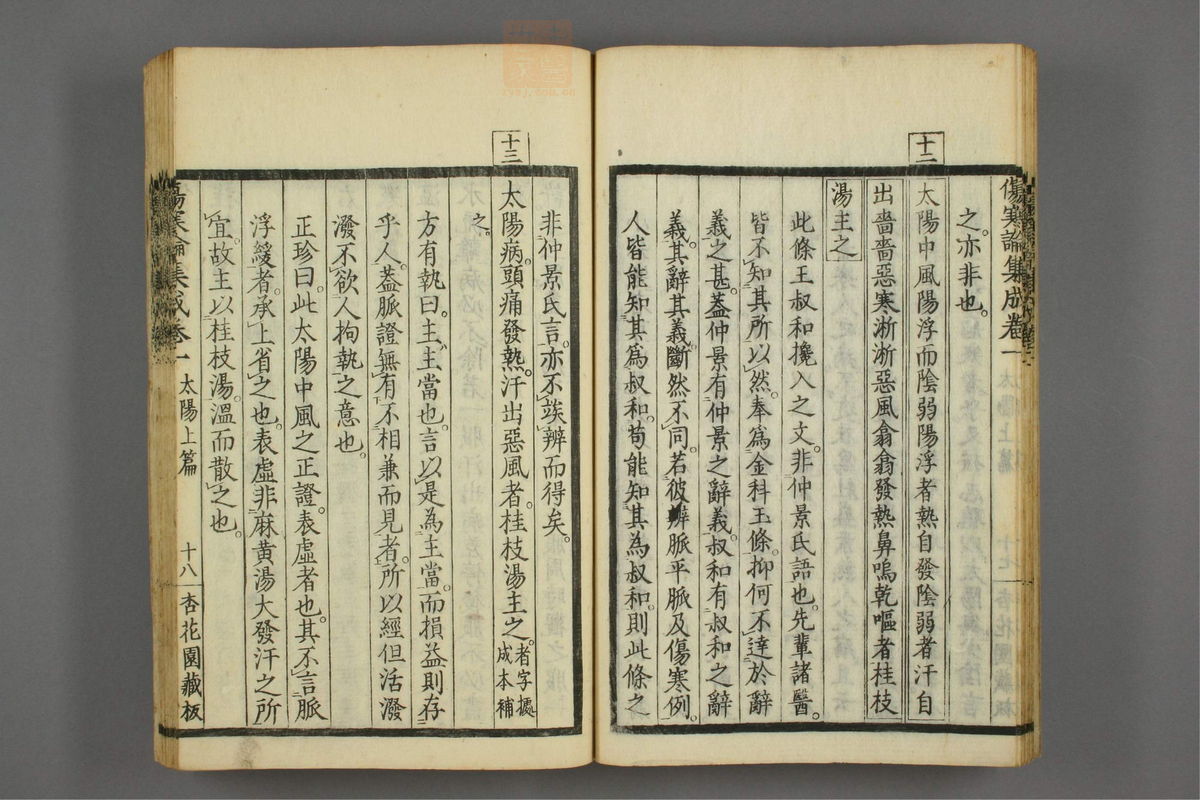 十二
之。亦非也。
太陽中風陽浮而陰弱陽浮者熱自發陰弱者汗自
出嗇嗇惡寒淅淅惡風翕翕發熱鼻鳴乾嘔者桂枝
湯主之
此條王叔和攙入之文。非仲景氏語也。先輩諸醫。
皆不知其所以然。奉爲金科玉條。抑何不達於辭
義之甚。蓋仲景有仲景之辭義。叔和有叔和之辭
義。其辭其義。斷然不同。若彼辨脈平脈及傷寒例。
人皆能知其爲叔和。苟能知其為叔和。則此條之
傷寒論集成卷一
十三
非仲景氏言。亦不竢辨而得矣。
太陽病。頭痛發熱。汗出惡風者。桂枝湯主之。者字據成本補
之。
方有執曰。主。主當也。言以是為主當。而損益則存
乎人。蓋脈證無有不相兼而見者。所以經但活潑
潑。不欲人拘執之意也。
正珍曰。此太陽中風之正證。表虛者也。其不言脈
浮緩者。承上省之也。表虛非麻黄湯大發汗之所
宜。故主以桂枝湯。溫而散之也。
傷寒論集成卷一 太陽上篇 十八 杏花園藏板